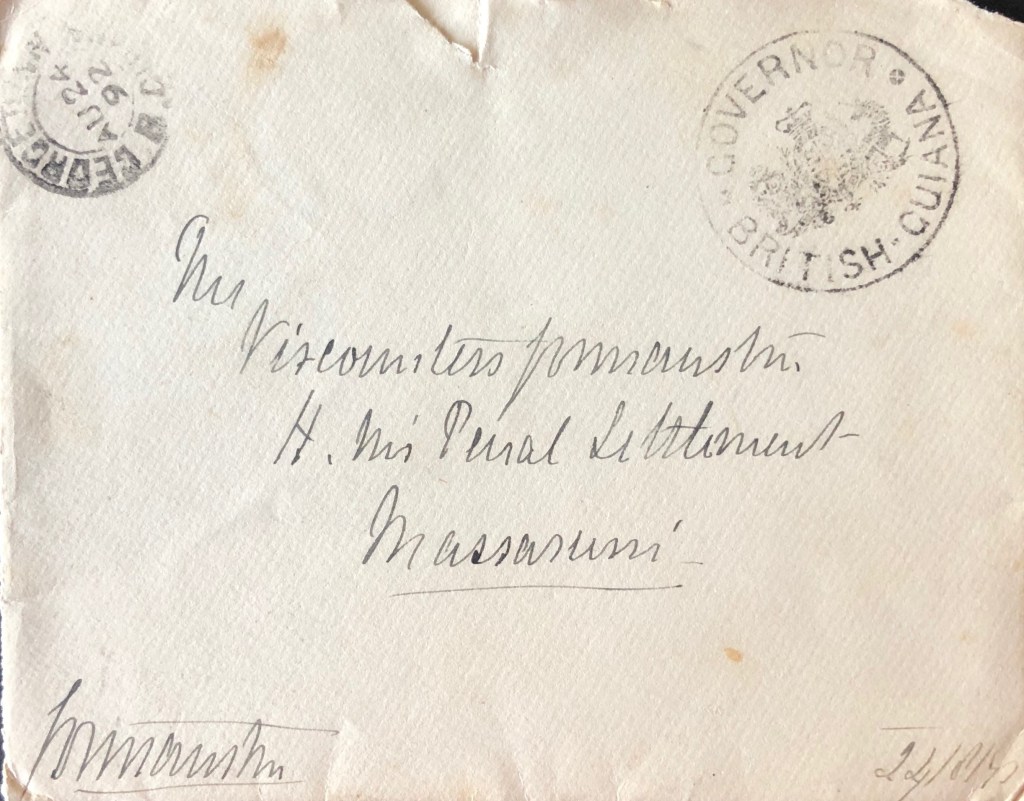 GEORGETOWN
AU 24
92
GOVERNOR
BRITISH·GUIANA
The
Viscountess Gormanston
H. M's Penal Settlement
Massaruni
Gormanston